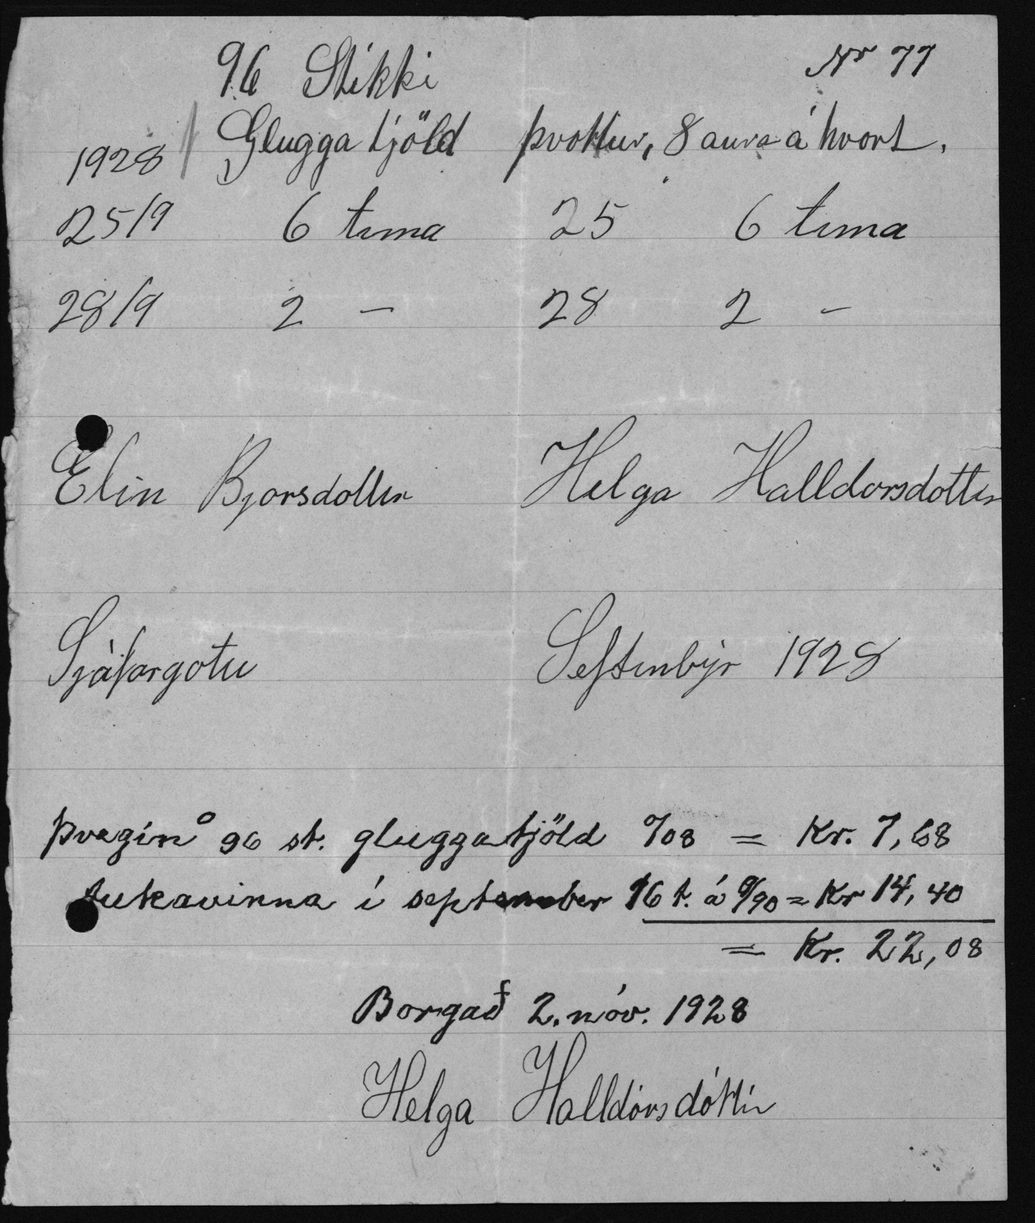 96 Stikki Nr 77
1928 Glugga tjöld þvottur, 8 aura á hvort.
25/9 6 tima 25 6 tima
28/9 2 – 28 2 –
Elin Bjorsdottir Helga Halldorsdottir
Sjáfargotu Seftenbýr 1928
Þvegin 96 st. gluggatjöld %08 = Kr. 7,68
Aukavinna í september 16 t. á %90 = Kr 14,40
= Kr. 22,08
Borgað 2. nóv. 1928
Helga Halldórsdóttir